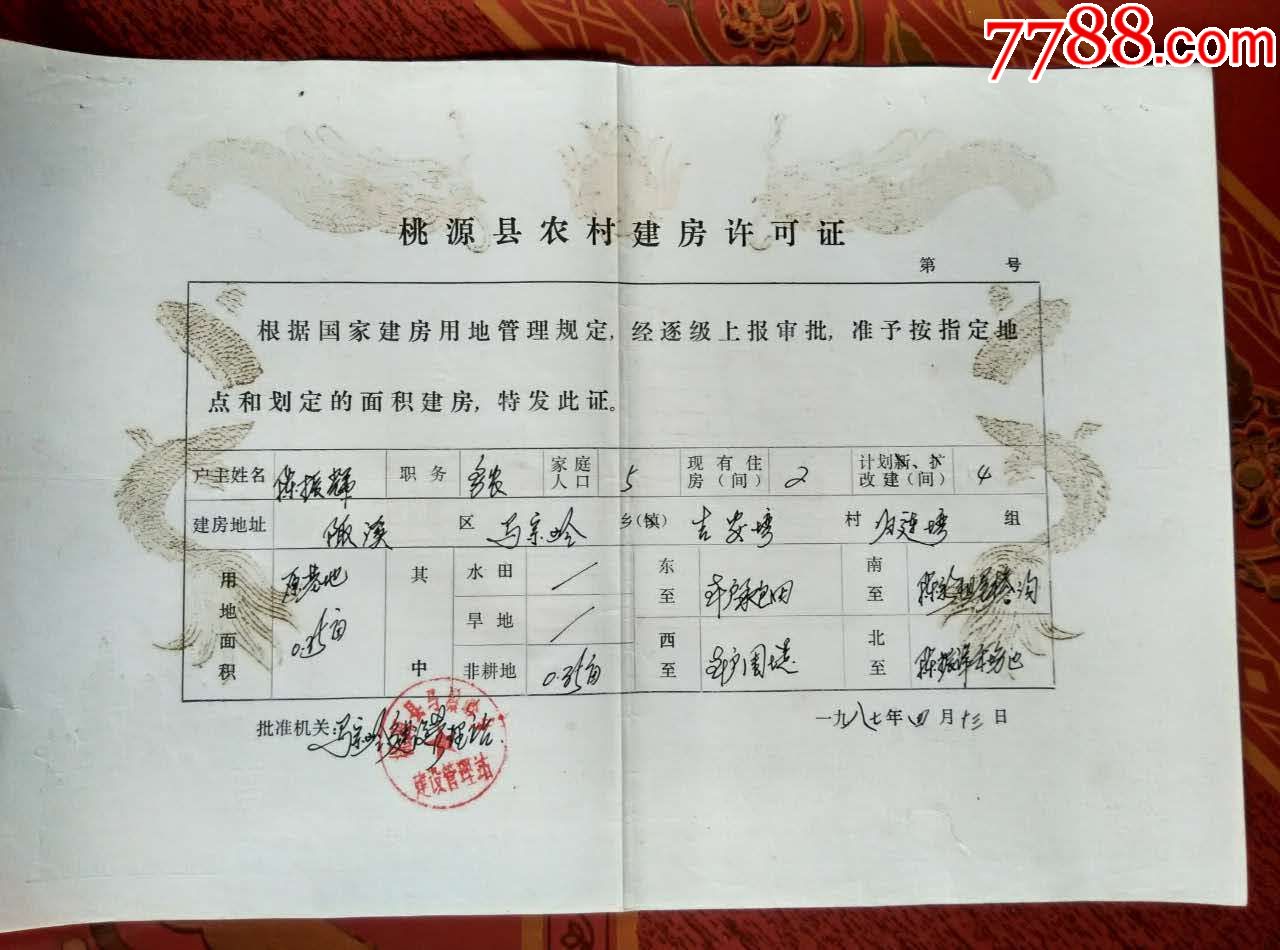 7788.com
桃源县农村建房许可证
第 号
根据国家建房用地管理规定,经逐级上报审批,准予按指定地
点和划定的面积建房,特发此证。
户主姓名 陈振辉 职务 务农 家庭人口 5 现有住房(间) 2 计划新、扩改建(间) 4
建房地址 陬溪 区 马宗岭 乡(镇) 吉安塆 村 塆 组
用地面积 原基地 0.35亩 其中 水田 / 东至 田 南至 沟
旱地 /
非耕地 0.35亩 西至 北至 陈振
批准机关: 马宗岭 建设管理站
建设管理站
一九八七年四月十三日